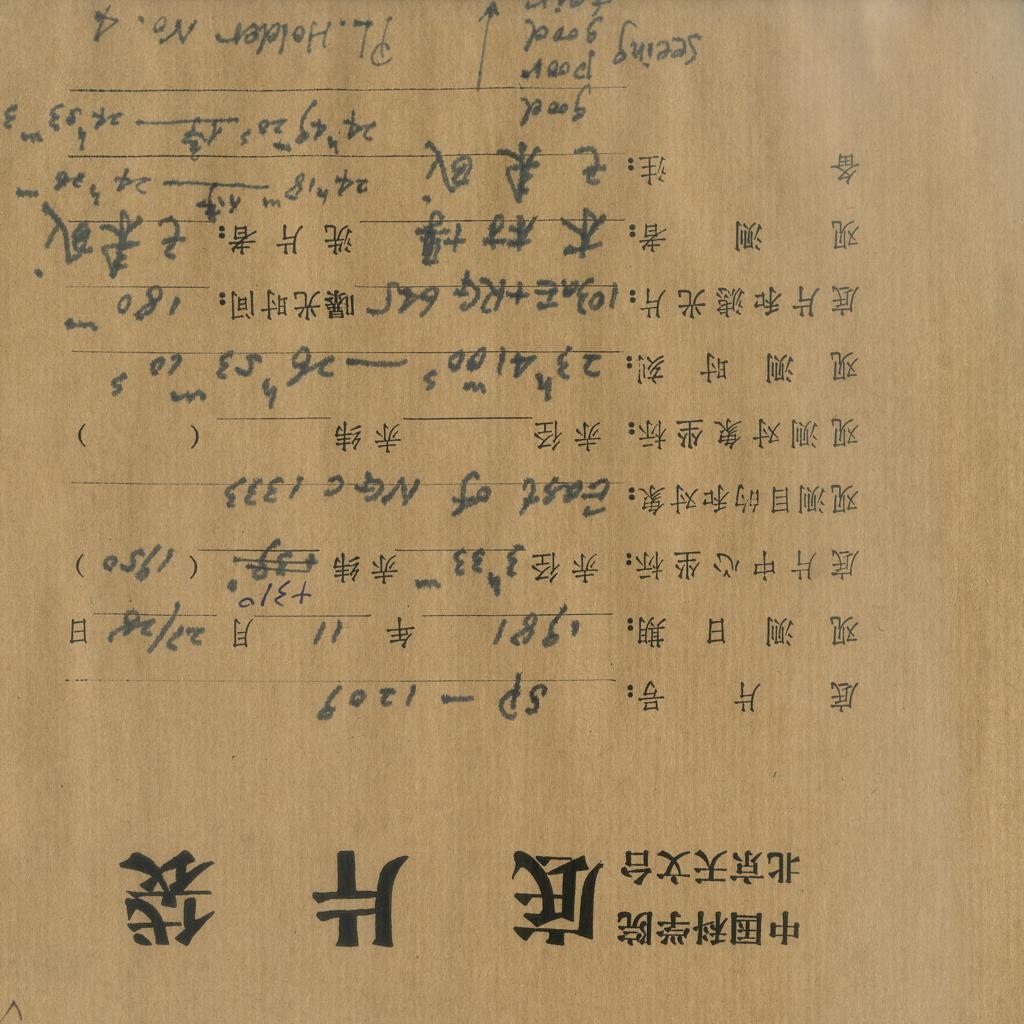 中国科学院
北京天文台
底 片 袋
底 片 号: SP — 1209
观 测 日 期: 1981 年 11 月 27/28 日
+31°
底片中心坐标: 赤径 3h33m 赤纬 +39° ( 1950 )
观测目的和对象: East of NGC 1333
观测对象坐标: 赤径 赤纬 ( )
观 测 时 刻: 23h41m00s — 26h53m
底片和滤光片: 103aE+RG 645 曝光时间: 180m
观 测 者: 木村 洗 片 者:
24h18m — 24h26m
备 注:
24h49m20s — 24h53m
good
poor
Seeing good
fair
PL. Holder No. 4